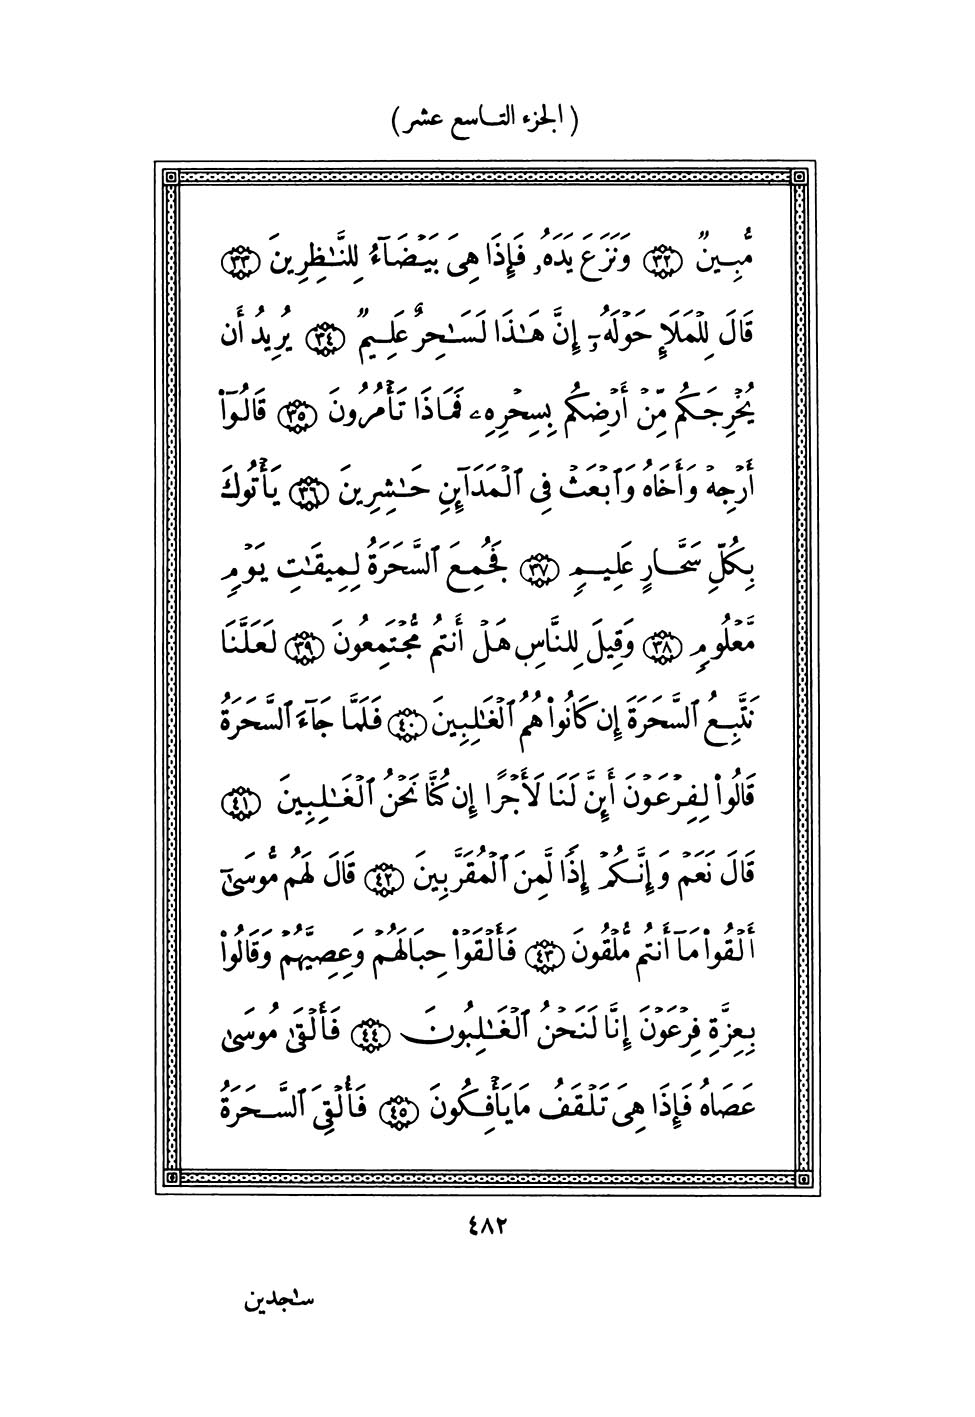 (الجزء التاسع عشر)
مُّبِينٌ ٣٢ وَنَزَعَ يَدَهُۥ فَإِذَا هِىَ بَيْضَآءُ لِلنَّـٰظِرِينَ ٣٣
قَالَ لِلْمَلَإِ حَوْلَهُۥٓ إِنَّ هَـٰذَا لَسَـٰحِرٌ عَلِيمٌ ٣٤ يُرِيدُ أَن
يُخْرِجَكُم مِّنْ أَرْضِكُم بِسِحْرِهِۦ فَمَاذَا تَأْمُرُونَ ٣٥ قَالُوٓا۟
أَرْجِهْ وَأَخَاهُ وَٱبْعَثْ فِى ٱلْمَدَآئِنِ حَـٰشِرِينَ ٣٦ يَأْتُوكَ
بِكُلِّ سَحَّارٍ عَلِيمٍ ٣٧ فَجُمِعَ ٱلسَّحَرَةُ لِمِيقَـٰتِ يَوْمٍ
مَّعْلُومٍ ٣٨ وَقِيلَ لِلنَّاسِ هَلْ أَنتُم مُّجْتَمِعُونَ ٣٩ لَعَلَّنَا
نَتَّبِعُ ٱلسَّحَرَةَ إِن كَانُوا۟ هُمُ ٱلْغَـٰلِبِينَ ٤٠ فَلَمَّا جَآءَ ٱلسَّحَرَةُ
قَالُوا۟ لِفِرْعَوْنَ أَئِنَّ لَنَا لَأَجْرًا إِن كُنَّا نَحْنُ ٱلْغَـٰلِبِينَ ٤١
قَالَ نَعَمْ وَإِنَّكُمْ إِذًا لَّمِنَ ٱلْمُقَرَّبِينَ ٤٢ قَالَ لَهُم مُّوسَىٰٓ
أَلْقُوا۟ مَآ أَنتُم مُّلْقُونَ ٤٣ فَأَلْقَوْا۟ حِبَالَهُمْ وَعِصِيَّهُمْ وَقَالُوا۟
بِعِزَّةِ فِرْعَوْنَ إِنَّا لَنَحْنُ ٱلْغَـٰلِبُونَ ٤٤ فَأَلْقَىٰ مُوسَىٰ
عَصَاهُ فَإِذَا هِىَ تَلْقَفُ مَا يَأْفِكُونَ ٤٥ فَأُلْقِىَ ٱلسَّحَرَةُ
٤٨٢
سـٰجدين